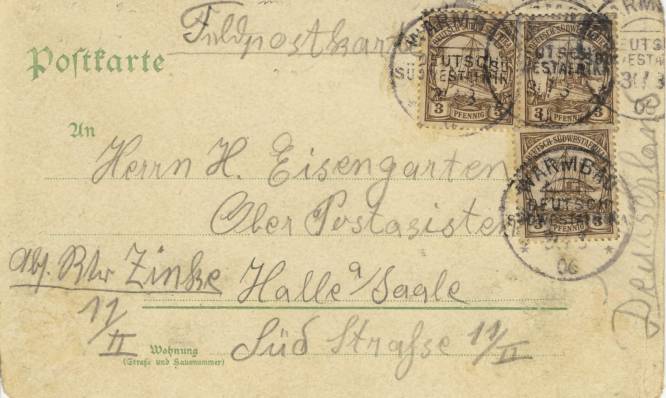 Feldpostkarte
Postkarte
An
Herrn H. Eisengarten
Ober Postasisten
Abs. Rtr Zinke
11/II
Halle a/Saale
Wohnung
(Straße und Hausnummer)
Süd Straße 11/II
Deutschland
DEUTSCH-SÜDWESTAFRIKA
3 PFENNIG 3
DEUTSCH-SÜDWESTAFRIKA
3 PFENNIG 3
DEUTSCH-SÜDWESTAFRIKA
3 PFENNIG 3
WARMBAD
DEUTSCH
SÜDWESTAFRIKA
WARMBAD
DEUTSCH
SÜDWESTAFRIKA
06